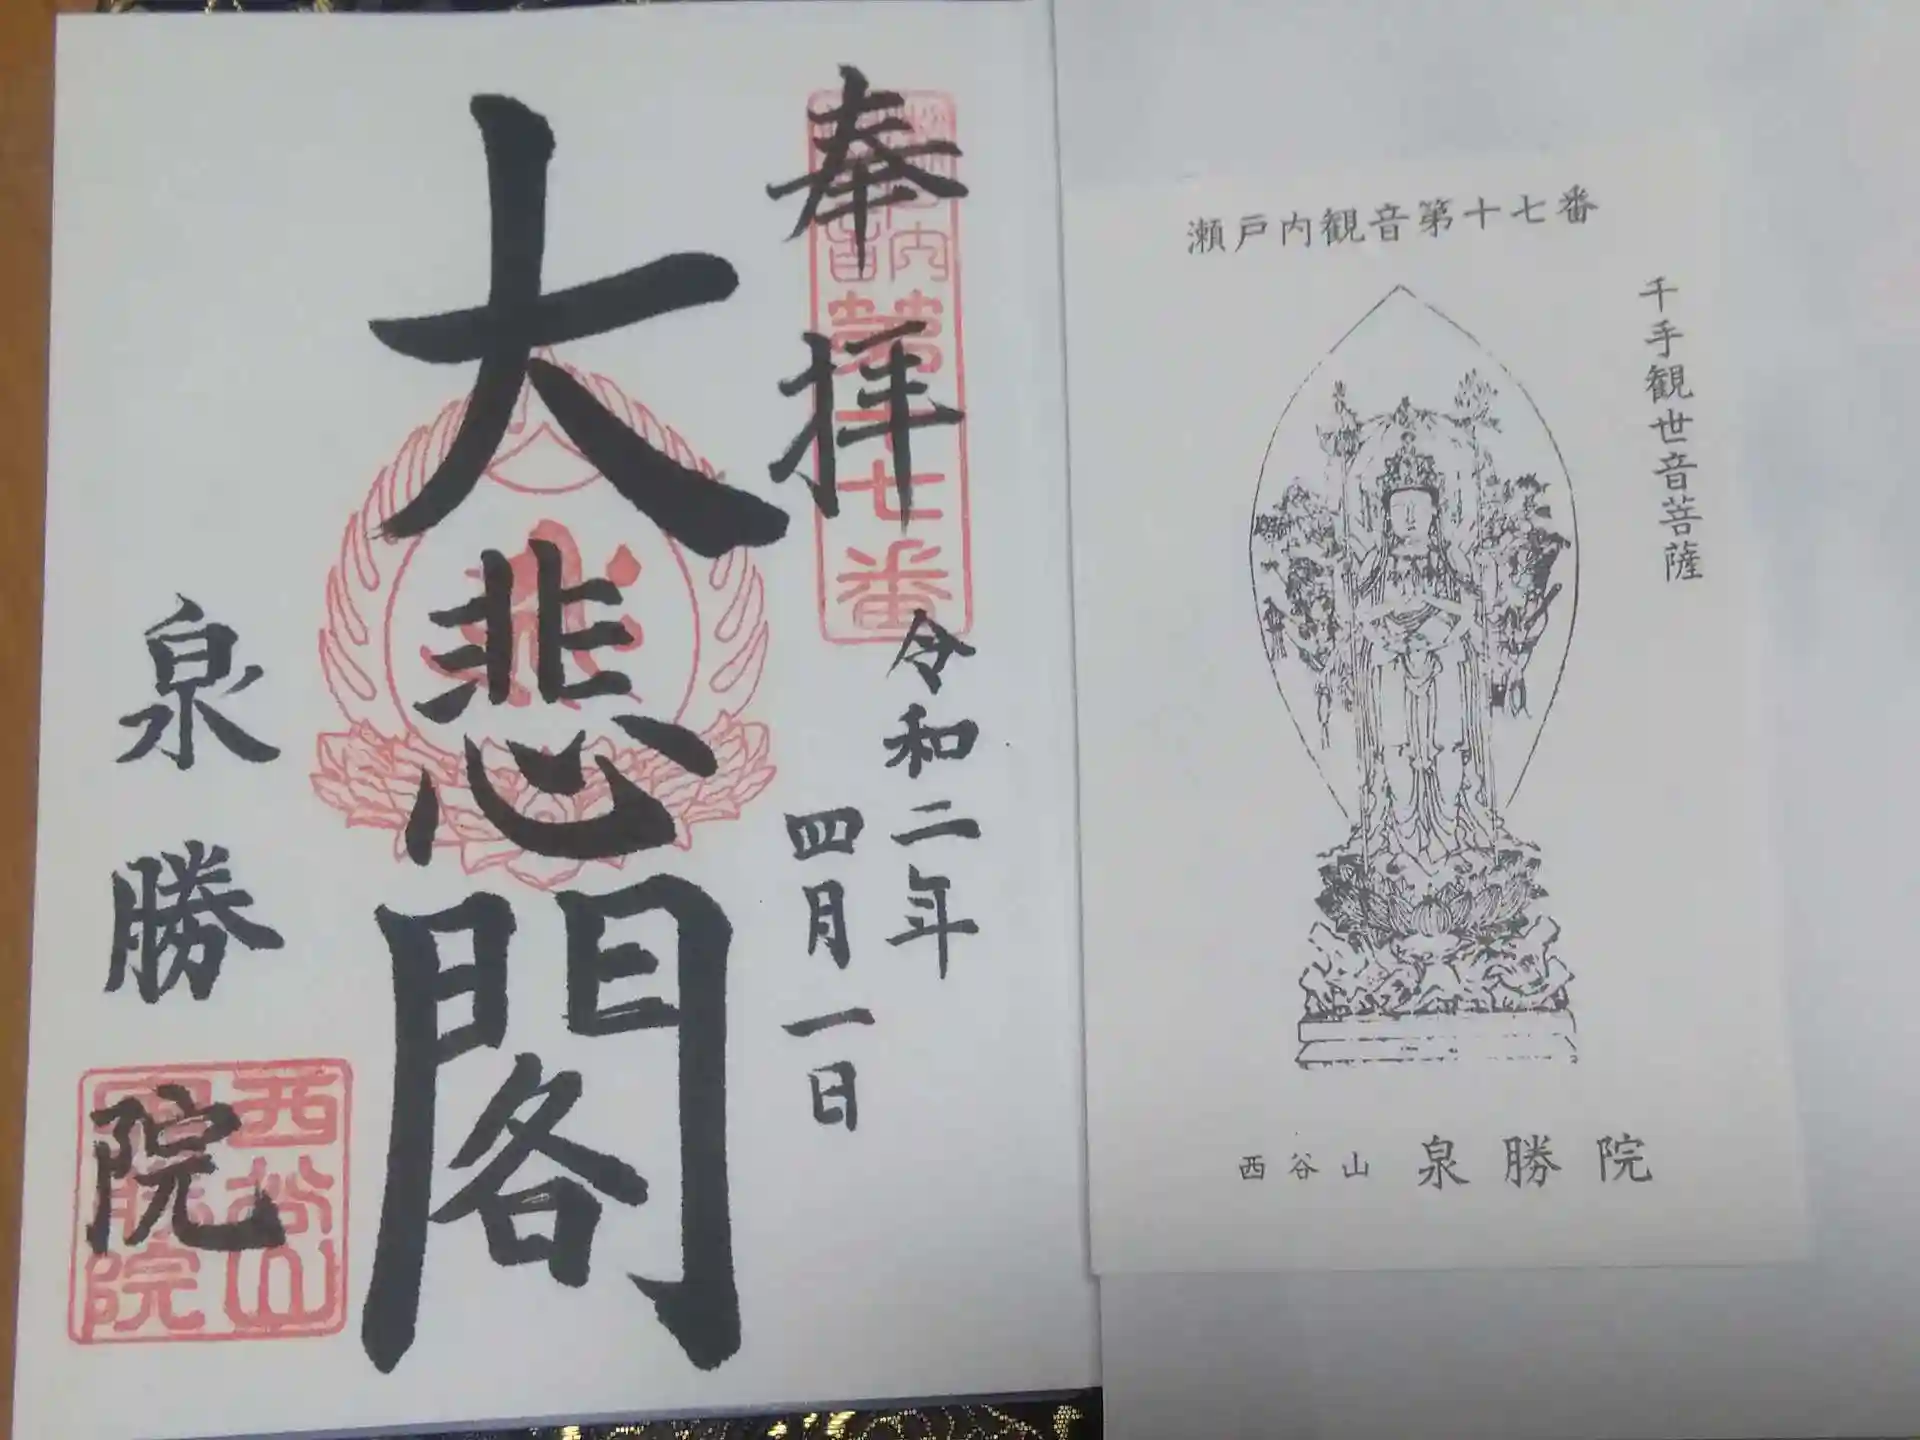 奉拝
令和二年
四月一日
大悲閣
泉勝院
瀬戸内観音第十七番
西谷山
泉勝院
瀬戸内観音第十七番
千手観世音菩薩
西谷山 泉勝院